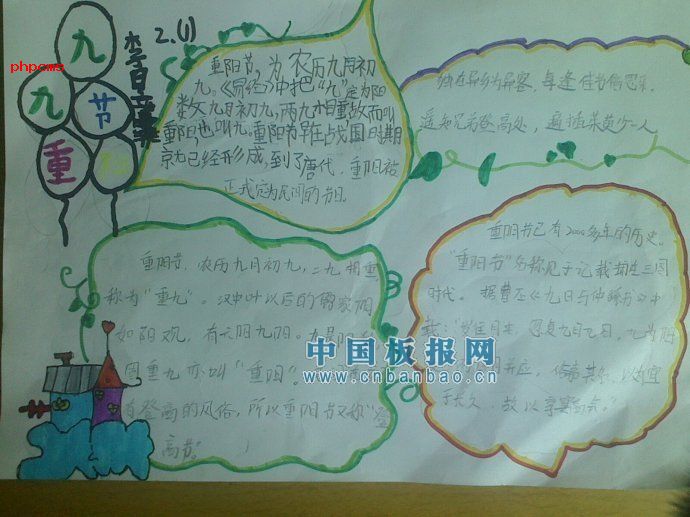 phpcms
九
九
节
重
李昱臻
2.(1)
重阳节，为农历九月初
九。《易经》中把“九”定为阳
数，九月初九，两九相重，故而叫
重阳，也叫九重阳节早在战国时期
就已经形成，到了唐代，重阳被
正式定为民间的节日。
独在异乡为异客，每逢佳节倍思亲。
遥知兄弟登高处，遍插茱萸少一人
重阳节，农历九月初九，二九相重
称为“重九”。汉中叶以后的儒家阴
阳观，有六阴九阳。九是阳
重九亦叫“重阳”。
有登高的风俗，所以重阳节又称“登
高节”。
重阳节已有2000多年的历史。
“重阳节”名称见于记载却在三国
时代。据曹丕《九日与钟繇书》中
载：“岁往月来，忽复九月九日。九为阳
并应，俗嘉其名，以为宜
于长久，故以享宴高会。”
中国板报网
www.cnbanbao.cn